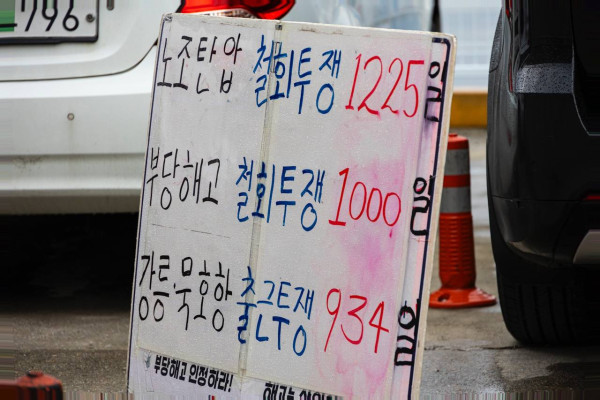 796
노조탄압 철회투쟁 1225일
부당해고 철회투쟁 1000일
강릉·묵호항 출근투쟁 934일
부당해고 인정하라!